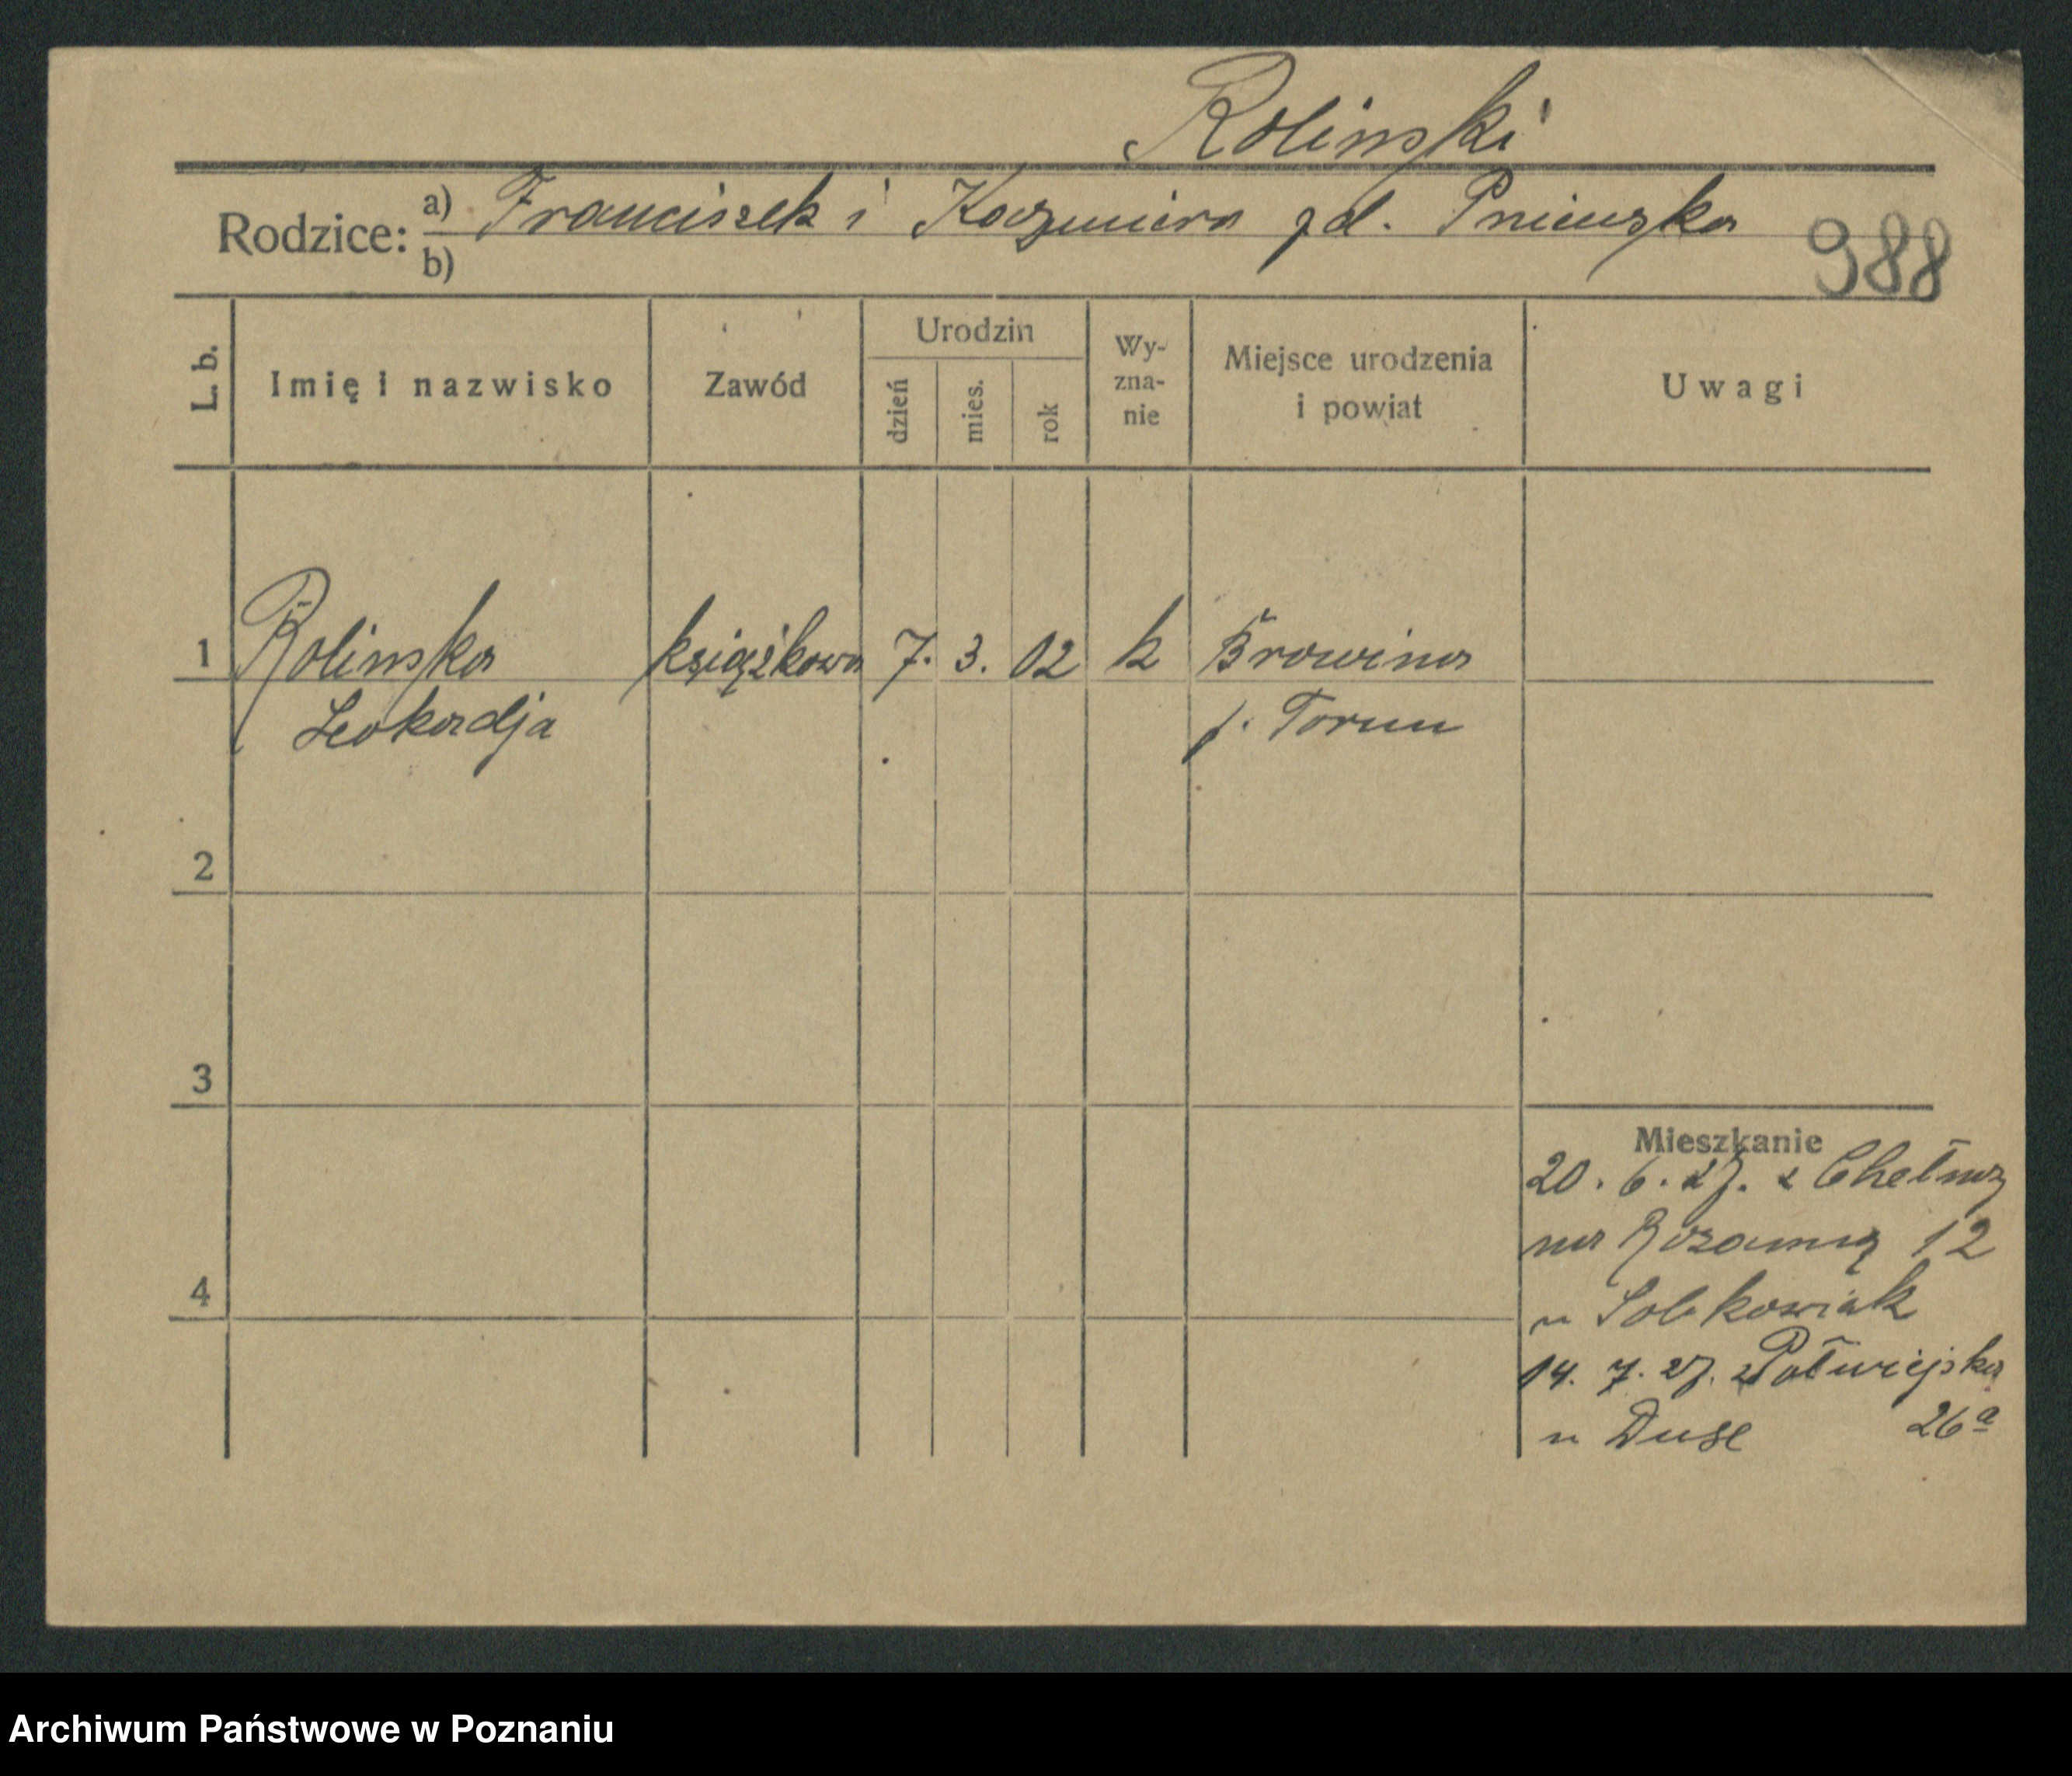 Rolinski
Rodzice: a) Franciszek i Kazmiera zd. Pniewska
b)
988
L. b.
Imię i nazwisko
Zawód
Urodzin
dzień
mies.
rok
Wy-
zna-
nie
Miejsce urodzenia
i powiat
Uwagi
1 Rolinska książkowa 7. 3. 02 k Browina
Leokadja p. Torun
2
3
4
Mieszkanie
20. 6. 27. z Chełmży
na Różanną 12
u Sobkowiak
14. 7. 27. Półwiejska
u Duse 26a
Archiwum Państwowe w Poznaniu